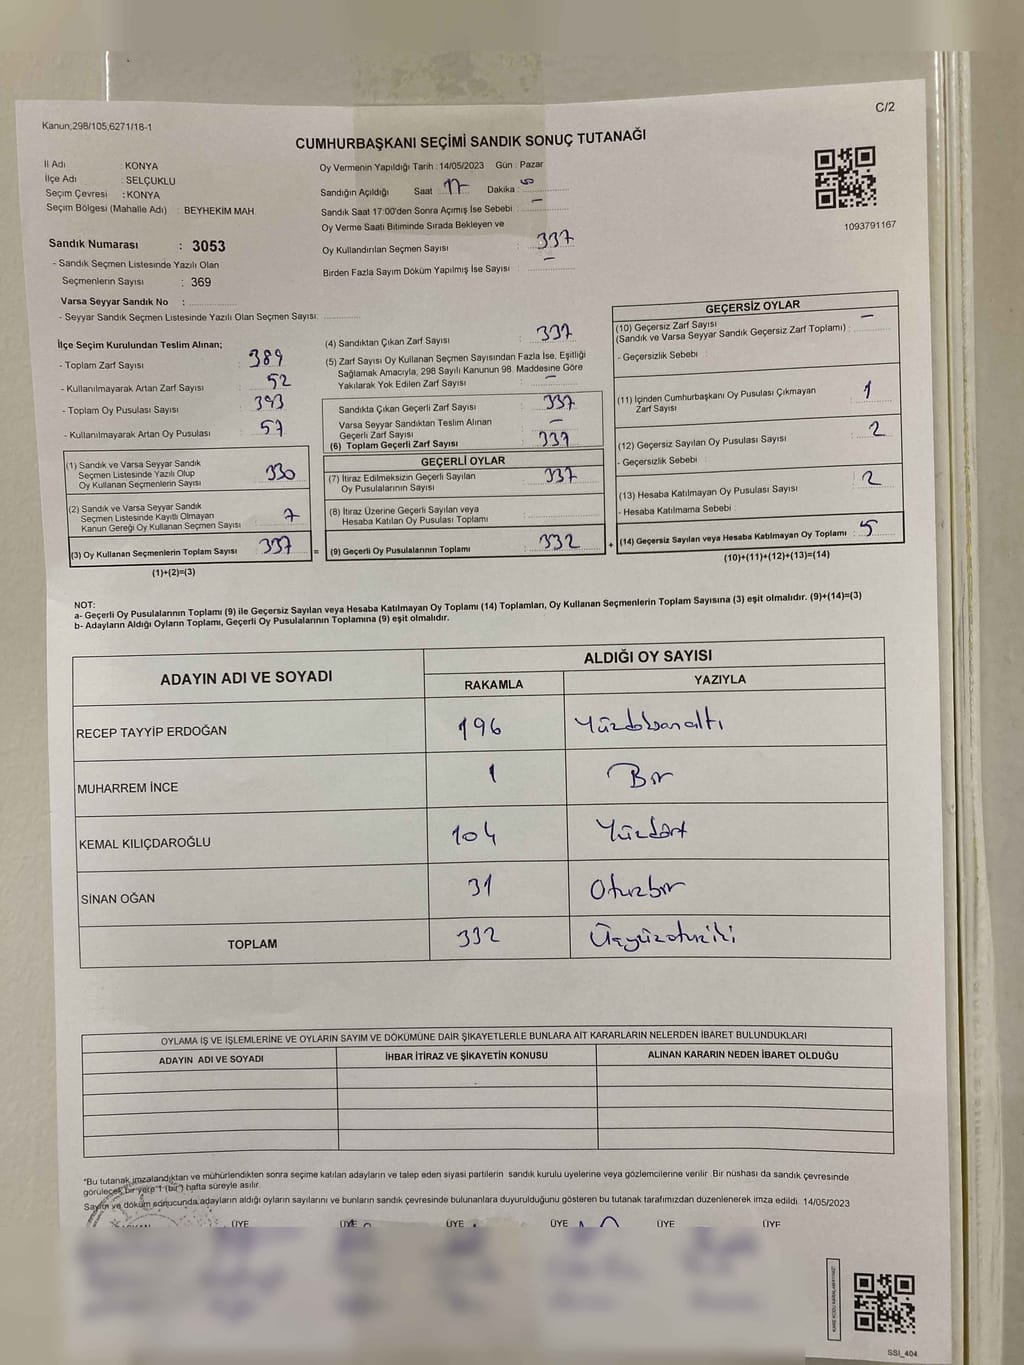 Kanun;298/105,6271/18-1
C/2
CUMHURBAŞKANI SEÇİMİ SANDIK SONUÇ TUTANAĞI
İl Adı : KONYA
İlçe Adı : SELÇUKLU
Seçim Çevresi : KONYA
Seçim Bölgesi (Mahalle Adı) : BEYHEKİM MAH.
Sandık Numarası : 3053
- Sandık Seçmen Listesinde Yazılı Olan
Seçmenlerin Sayısı : 369
Varsa Seyyar Sandık No :
- Seyyar Sandık Seçmen Listesinde Yazılı Olan Seçmen Sayısı:
Oy Vermenin Yapıldığı Tarih : 14/05/2023 Gün : Pazar
Sandığın Açıldığı Saat : 17 Dakika :
Sandık Saat 17:00'den Sonra Açımış İse Sebebi : —
Oy Verme Saati Bitiminde Sırada Bekleyen ve
Oy Kullandırılan Seçmen Sayısı : 337
Birden Fazla Sayım Döküm Yapılmış İse Sayısı : —
1093791167
İlçe Seçim Kurulundan Teslim Alınan;
- Toplam Zarf Sayısı : 389
- Kullanılmayarak Artan Zarf Sayısı : 52
- Toplam Oy Pusulası Sayısı : 393
- Kullanılmayarak Artan Oy Pusulası : 57
(1) Sandık ve Varsa Seyyar Sandık
Seçmen Listesinde Yazılı Olup
Oy Kullanan Seçmenlerin Sayısı : 330
(2) Sandık ve Varsa Seyyar Sandık
Seçmen Listesinde Kayıtlı Olmayan
Kanun Gereği Oy Kullanan Seçmen Sayısı : 7
(3) Oy Kullanan Seçmenlerin Toplam Sayısı : 337
(1)+(2)=(3)
=
(4) Sandıktan Çıkan Zarf Sayısı : 337
(5) Zarf Sayısı Oy Kullanan Seçmen Sayısından Fazla İse, Eşitliği
Sağlamak Amacıyla, 298 Sayılı Kanunun 98. Maddesine Göre
Yakılarak Yok Edilen Zarf Sayısı : —
Sandıkta Çıkan Geçerli Zarf Sayısı : 337
Varsa Seyyar Sandıktan Teslim Alınan
Geçerli Zarf Sayısı : —
(6) Toplam Geçerli Zarf Sayısı : 337
GEÇERLİ OYLAR
(7) İtiraz Edilmeksizin Geçerli Sayılan
Oy Pusulalarının Sayısı : 337
(8) İtiraz Üzerine Geçerli Sayılan veya
Hesaba Katılan Oy Pusulası Toplamı :
(9) Geçerli Oy Pusulalarının Toplamı : 332
+
GEÇERSİZ OYLAR
(10) Geçersiz Zarf Sayısı
(Sandık ve Varsa Seyyar Sandık Geçersiz Zarf Toplamı) : —
- Geçersizlik Sebebi :
(11) İçinden Cumhurbaşkanı Oy Pusulası Çıkmayan
Zarf Sayısı : 1
(12) Geçersiz Sayılan Oy Pusulası Sayısı : 2
- Geçersizlik Sebebi :
(13) Hesaba Katılmayan Oy Pusulası Sayısı : 2
- Hesaba Katılmama Sebebi :
(14) Geçersiz Sayılan veya Hesaba Katılmayan Oy Toplamı : 5
(10)+(11)+(12)+(13)=(14)
NOT:
a- Geçerli Oy Pusulalarının Toplamı (9) ile Geçersiz Sayılan veya Hesaba Katılmayan Oy Toplamı (14) Toplamları, Oy Kullanan Seçmenlerin Toplam Sayısına (3) eşit olmalıdır. (9)+(14)=(3)
b- Adayların Aldığı Oyların Toplamı, Geçerli Oy Pusulalarının Toplamına (9) eşit olmalıdır.
ADAYIN ADI VE SOYADI
ALDIĞI OY SAYISI
RAKAMLA YAZIYLA
RECEP TAYYİP ERDOĞAN 196 Yüzdoksanaltı
MUHARREM İNCE 1 Bir
KEMAL KILIÇDAROĞLU 104 Yüzdört
SİNAN OĞAN 31 Otuzbir
TOPLAM 332 Üçyüzotuziki
OYLAMA İŞ VE İŞLEMLERİNE VE OYLARIN SAYIM VE DÖKÜMÜNE DAİR ŞİKAYETLERLE BUNLARA AİT KARARLARIN NELERDEN İBARET BULUNDUKLARI
ADAYIN ADI VE SOYADI İHBAR İTİRAZ VE ŞİKAYETİN KONUSU ALINAN KARARIN NEDEN İBARET OLDUĞU
*Bu tutanak imzalandıktan ve mühürlendikten sonra seçime katılan adayların ve talep eden siyasi partilerin sandık kurulu üyelerine veya gözlemcilerine verilir. Bir nüshası da sandık çevresinde
görülecek bir yere 1 (bir) hafta süreyle asılır.
Sayım ve döküm sonucunda adayların aldığı oyların sayılarını ve bunların sandık çevresinde bulunanlara duyurulduğunu gösteren bu tutanak tarafımızdan düzenlenerek imza edildi. 14/05/2023
ÜYE ÜYE ÜYE ÜYE ÜYE ÜYE
SSI_404